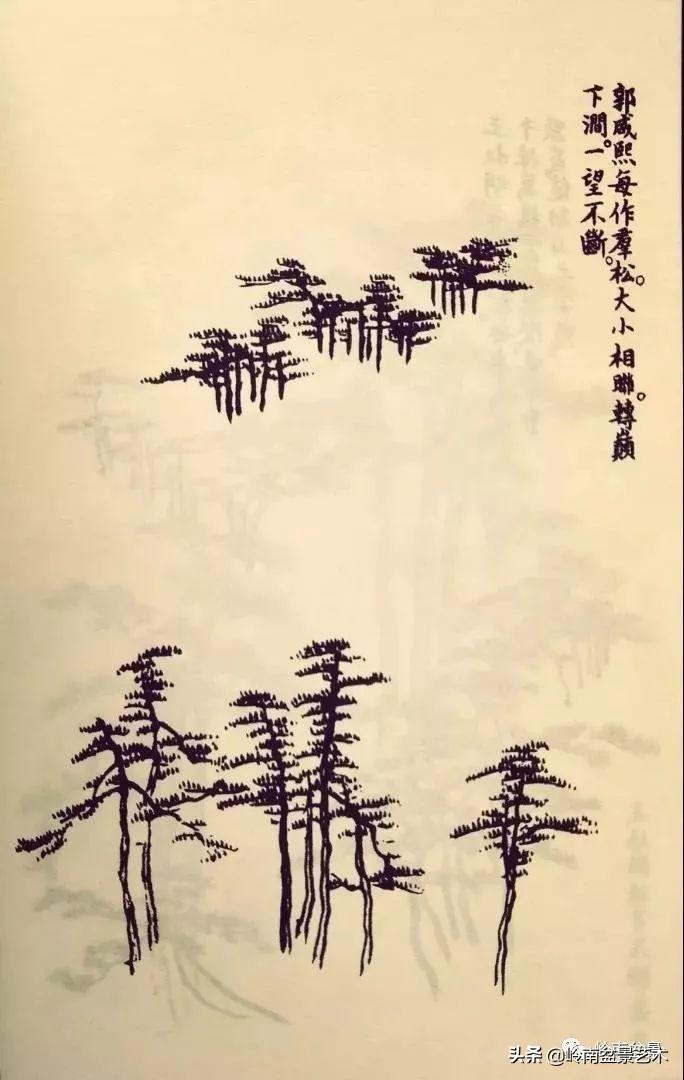 郭咸熙每作羣松。大小相聯。轉巔
下澗。一望不斷。
头条 @岭南盆景艺术
岭南盆景